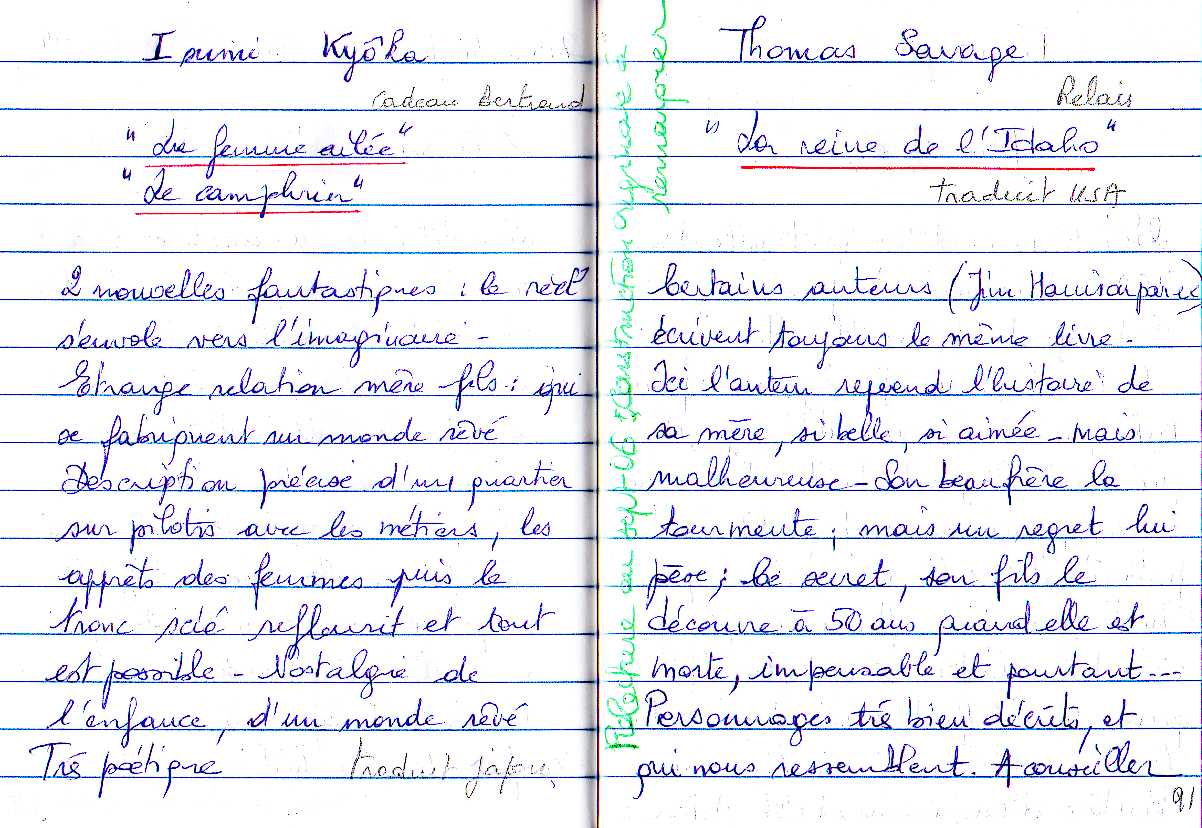 Izumi Kyōka
Cadeau Bertrand
"La femme ailée"
"Le camphrier"
2 nouvelles fantastiques : le réel
s'envole vers l'imaginaire -
Etrange relation mère fils : qui
se fabriquent un monde rêvé
Description précise d'un quartier
sur pilotis avec les métiers, les
apprêts des femmes puis le
tronc scié reflourit et tout
est possible - Nostalgie de
l'enfance, d'un monde rêvé
Très poétique
traduit japon
Relu en sept-16 Construction
remarquer
Thomas Savage
Relais
"La reine de l'Idaho"
traduit USA
Certains auteurs (Jim Harrison
écrivent toujours le même livre -
Ici l'auteur reprend l'histoire de
sa mère, si belle, si aimée - mais
malheureuse - Son beau frère la
tourmente ; mais un regret lui
pèse ; Ce secret, son fils le
découvre à 50 ans quand elle est
morte, impensable et pourtant ---
Personnages très bien décrits, et
qui nous ressemblent. A conseiller
91